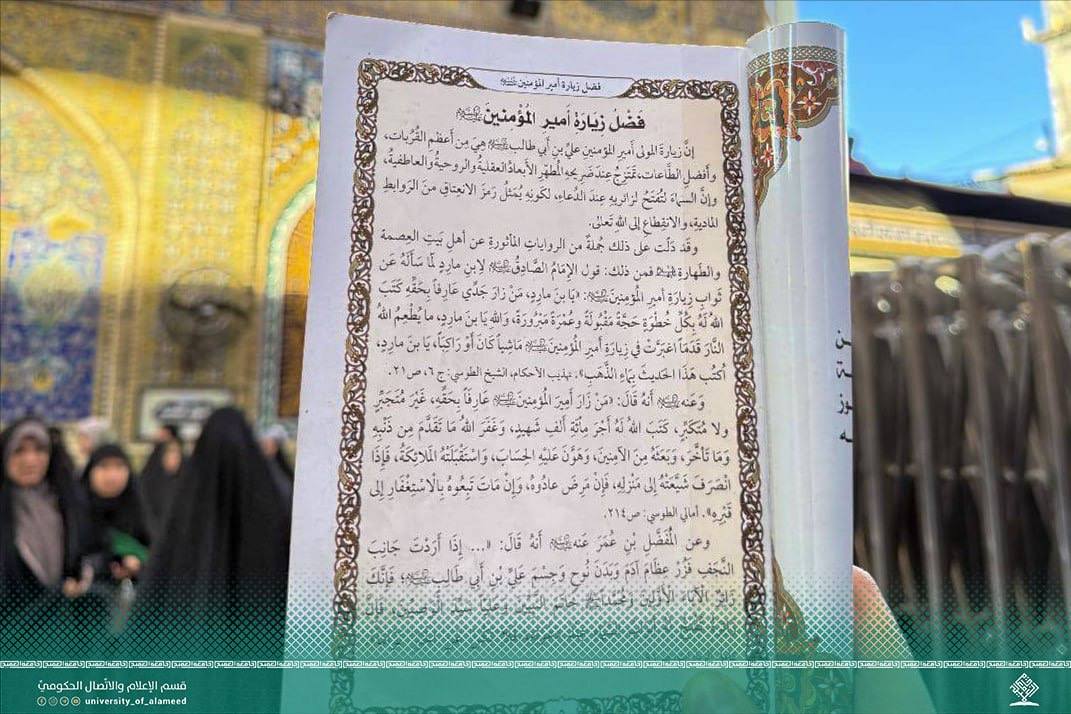 فضل زيارة أمير المؤمنين
فَضْل زيَارَة أَمير المُؤْمنينَ
إنَّ زيارةَ المولى أميرِ المؤمنين عليِّ بن أبي طالبٍ هيَ مِن أعظمِ القُرُبات،
وأفضلِ الطَّاعات، تَمتَزِجُ عندَ ضَريحِهِ المُطهّرِ الأبعادُ العقليةُ والروحيةُ والعاطفيةُ،
وإنَّ السماءَ لتُفتَحُ لزائريهِ عندَ الدُّعاءِ، لكونِهِ يُمَثِّلُ رمزَ الانعتاقِ منَ الروابطِ
الماديةِ، والانقطاعِ إلى الله تَعالى.
وقَد دَلَّت على ذلك جُملةٌ من الرواياتِ المأثورةِ عن أهلِ بَيتِ العِصمة
والطهارةِ فمن ذلك: قول الإمَامُ الصَّادِقُ لِابنِ مارِدٍ لمَّا سَألَهُ عَن
ثَوابِ زيارةِ أميرِ المُؤمِنينَ: «يَا بنَ مارِدٍ، مَنْ زارَ جَدِّي عارِفاً بِحَقِّهِ كَتَبَ
اللهُ لَهُ بِكُلِّ خُطْوَةٍ حَجَّةً مَقْبُولَةً وعُمْرَةً مَبْرُورَةً، وَاللهِ يَا بنَ مارِدٍ، ما يُطْعِمُ اللهُ
النَّارَ قَدَماً اغْبَرَّتْ في زِيارَةِ أميرِ المُؤْمِنينَ مَاشِياً كَانَ أَوْ رَاكِباً، يَا بنَ مارِدٍ،
اُكتُب هَذَا الحَديثَ بِمَاءِ الذَّهَبِ». تهذيب الأحكام، الشيخ الطوسي: ج ٦، ص٢١.
وَعَنه أَنهُ قَالَ: «مَنْ زَارَ أَمِيرَ الْمُؤْمِنِينَ عَارِفاً بِحَقِّهِ، غَيْرَ مُتَجَبِّرٍ
ولا مُتَكَبِّرٍ، كَتَبَ اللهُ لَهُ أَجْرَ مِائَةِ أَلفِ شَهِيدٍ، وَغَفَرَ اللهُ مَا تَقَدَّمَ مِن ذَنْبِهِ
وَمَا تَأَخَّرَ، وَبَعَثَهُ مِنَ الآمِنِينَ، وَهَوَّنَ عَلَيهِ الْحِسَابَ، وَاسْتَقْبَلَتْهُ المَلائِكَةُ، فَإِذَا
انْصَرَفَ شَيَّعَتْهُ إِلى مَنْزِلِهِ، فَإِنْ مَرِضَ عادُوهُ، وَإنْ مَاتَ تَبِعُوهُ بِالْاسْتِغْفَارِ إِلى
قَبْرِهِ». أمالي الطوسي: ص٢١٤.
وعن المُفَضَّلِ بْنِ عُمَرَ عنه أَنهُ قَالَ: «... إِذَا أَرَدْتَ جَانِبَ
النَّجَفِ فَزُرْ عِظَامَ آدَمَ وَبَدَنَ نُوحٍ وَجِسْمَ عَلِيِّ بْنِ أَبِي طَالِبٍ؛ فَإِنَّكَ
زَائِرٌ الآبَاءَ الأَوَّلِينَ وَمُحَمَّداً خَاتَمَ النَّبِيِّينَ وَعَلِيّاً سَيِّدَ الْوَصِيِّينَ، فَإِنَّ
قسم الإعلام والاتصال الحكومي
university_of_alameed